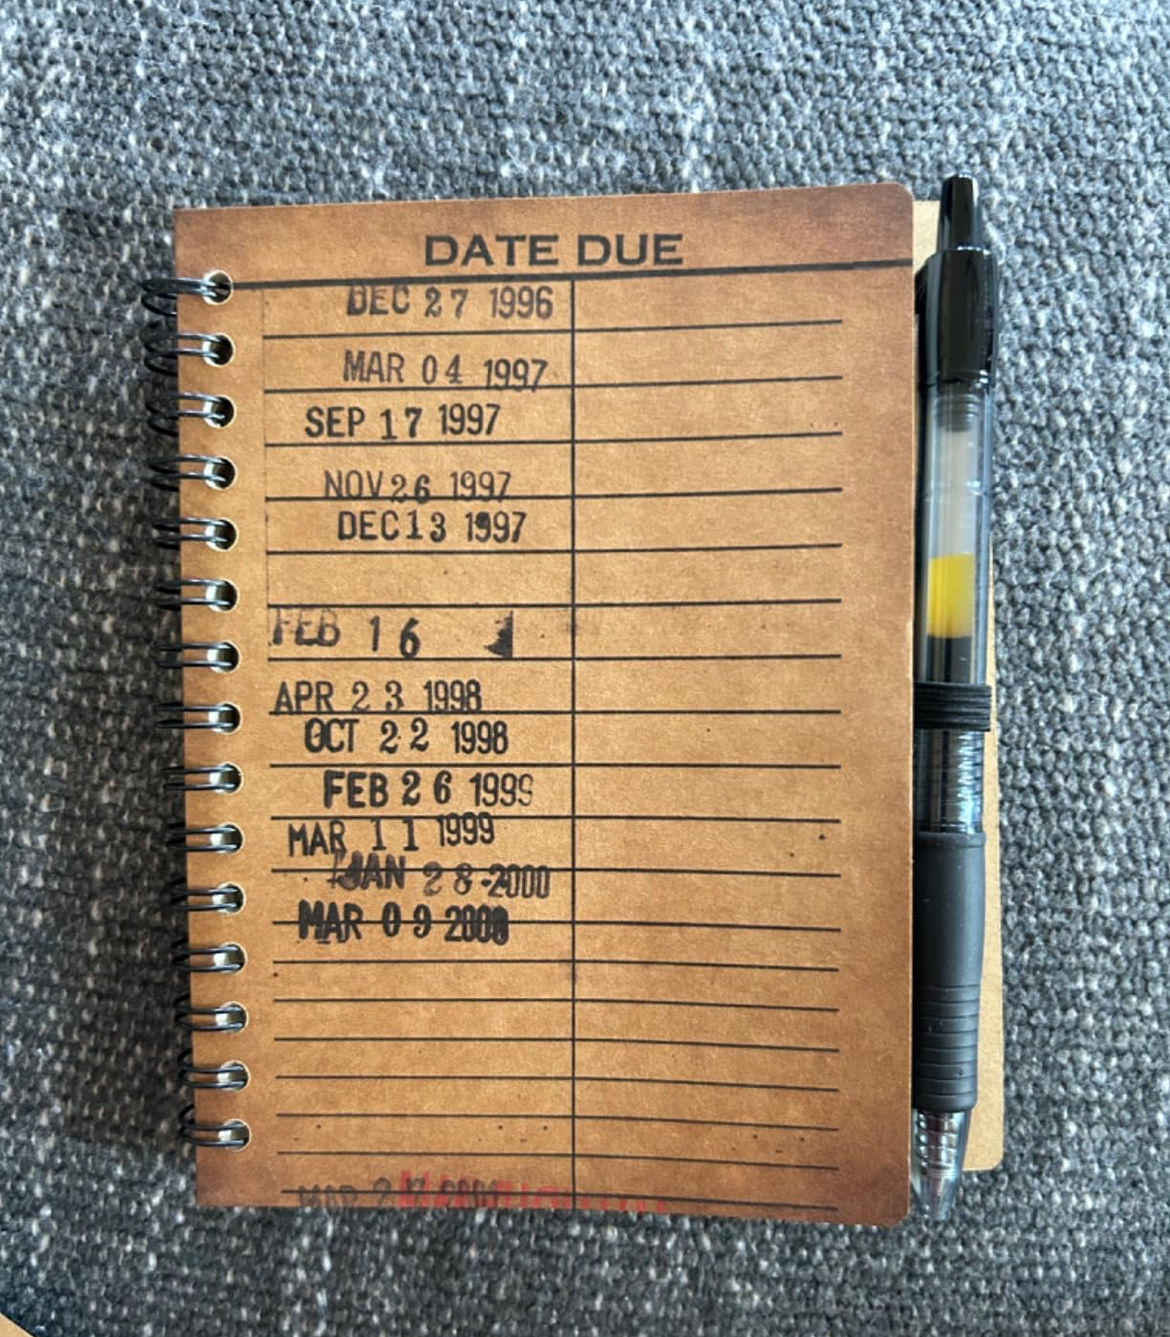 DATE DUE
DEC 27 1996
MAR 04 1997
SEP 17 1997
NOV 26 1997
DEC 13 1997
FEB 16
APR 23 1998
OCT 22 1998
FEB 26 1999
MAR 11 1999
JAN 28 2000
MAR 09 2000
MAR 2